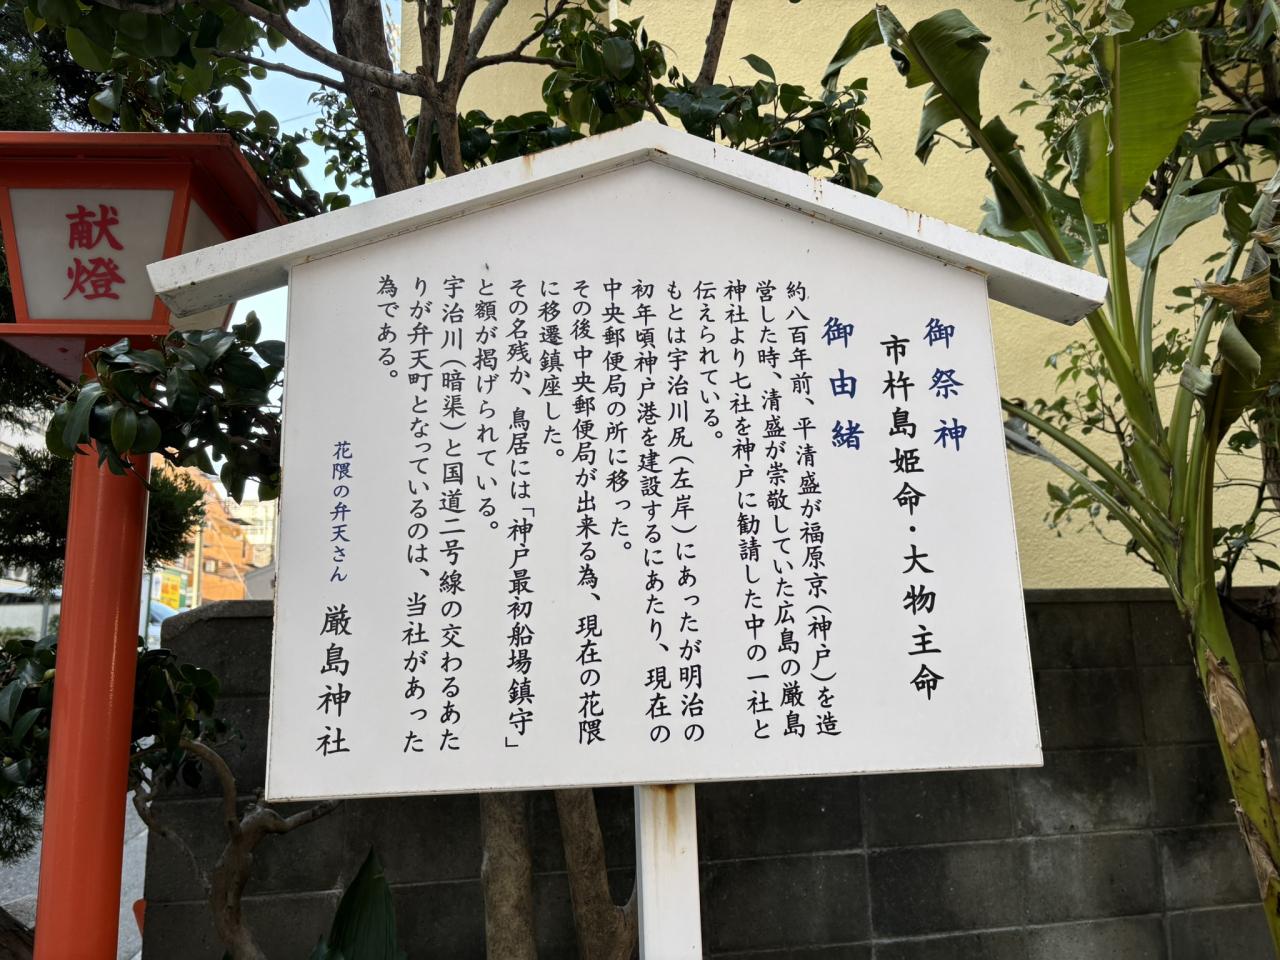 献燈
御祭神
市杵島姫命・大物主命
御由緒
約八百年前、平清盛が福原京(神戸)を造
営した時、清盛が崇敬していた広島の厳島
神社より七社を神戸に勧請した中の一社と
伝えられている。
もとは宇治川尻(左岸)にあったが明治の
初年頃神戸港を建設するにあたり、現在の
中央郵便局の所に移った。
その後中央郵便局が出来る為、現在の花隈
に移遷鎮座した。
その名残か、鳥居には「神戸最初船場鎮守」
と額が掲げられている。
宇治川(暗渠)と国道二号線の交わるあた
りが弁天町となっているのは、当社があった
為である。
花隈の弁天さん 厳島神社